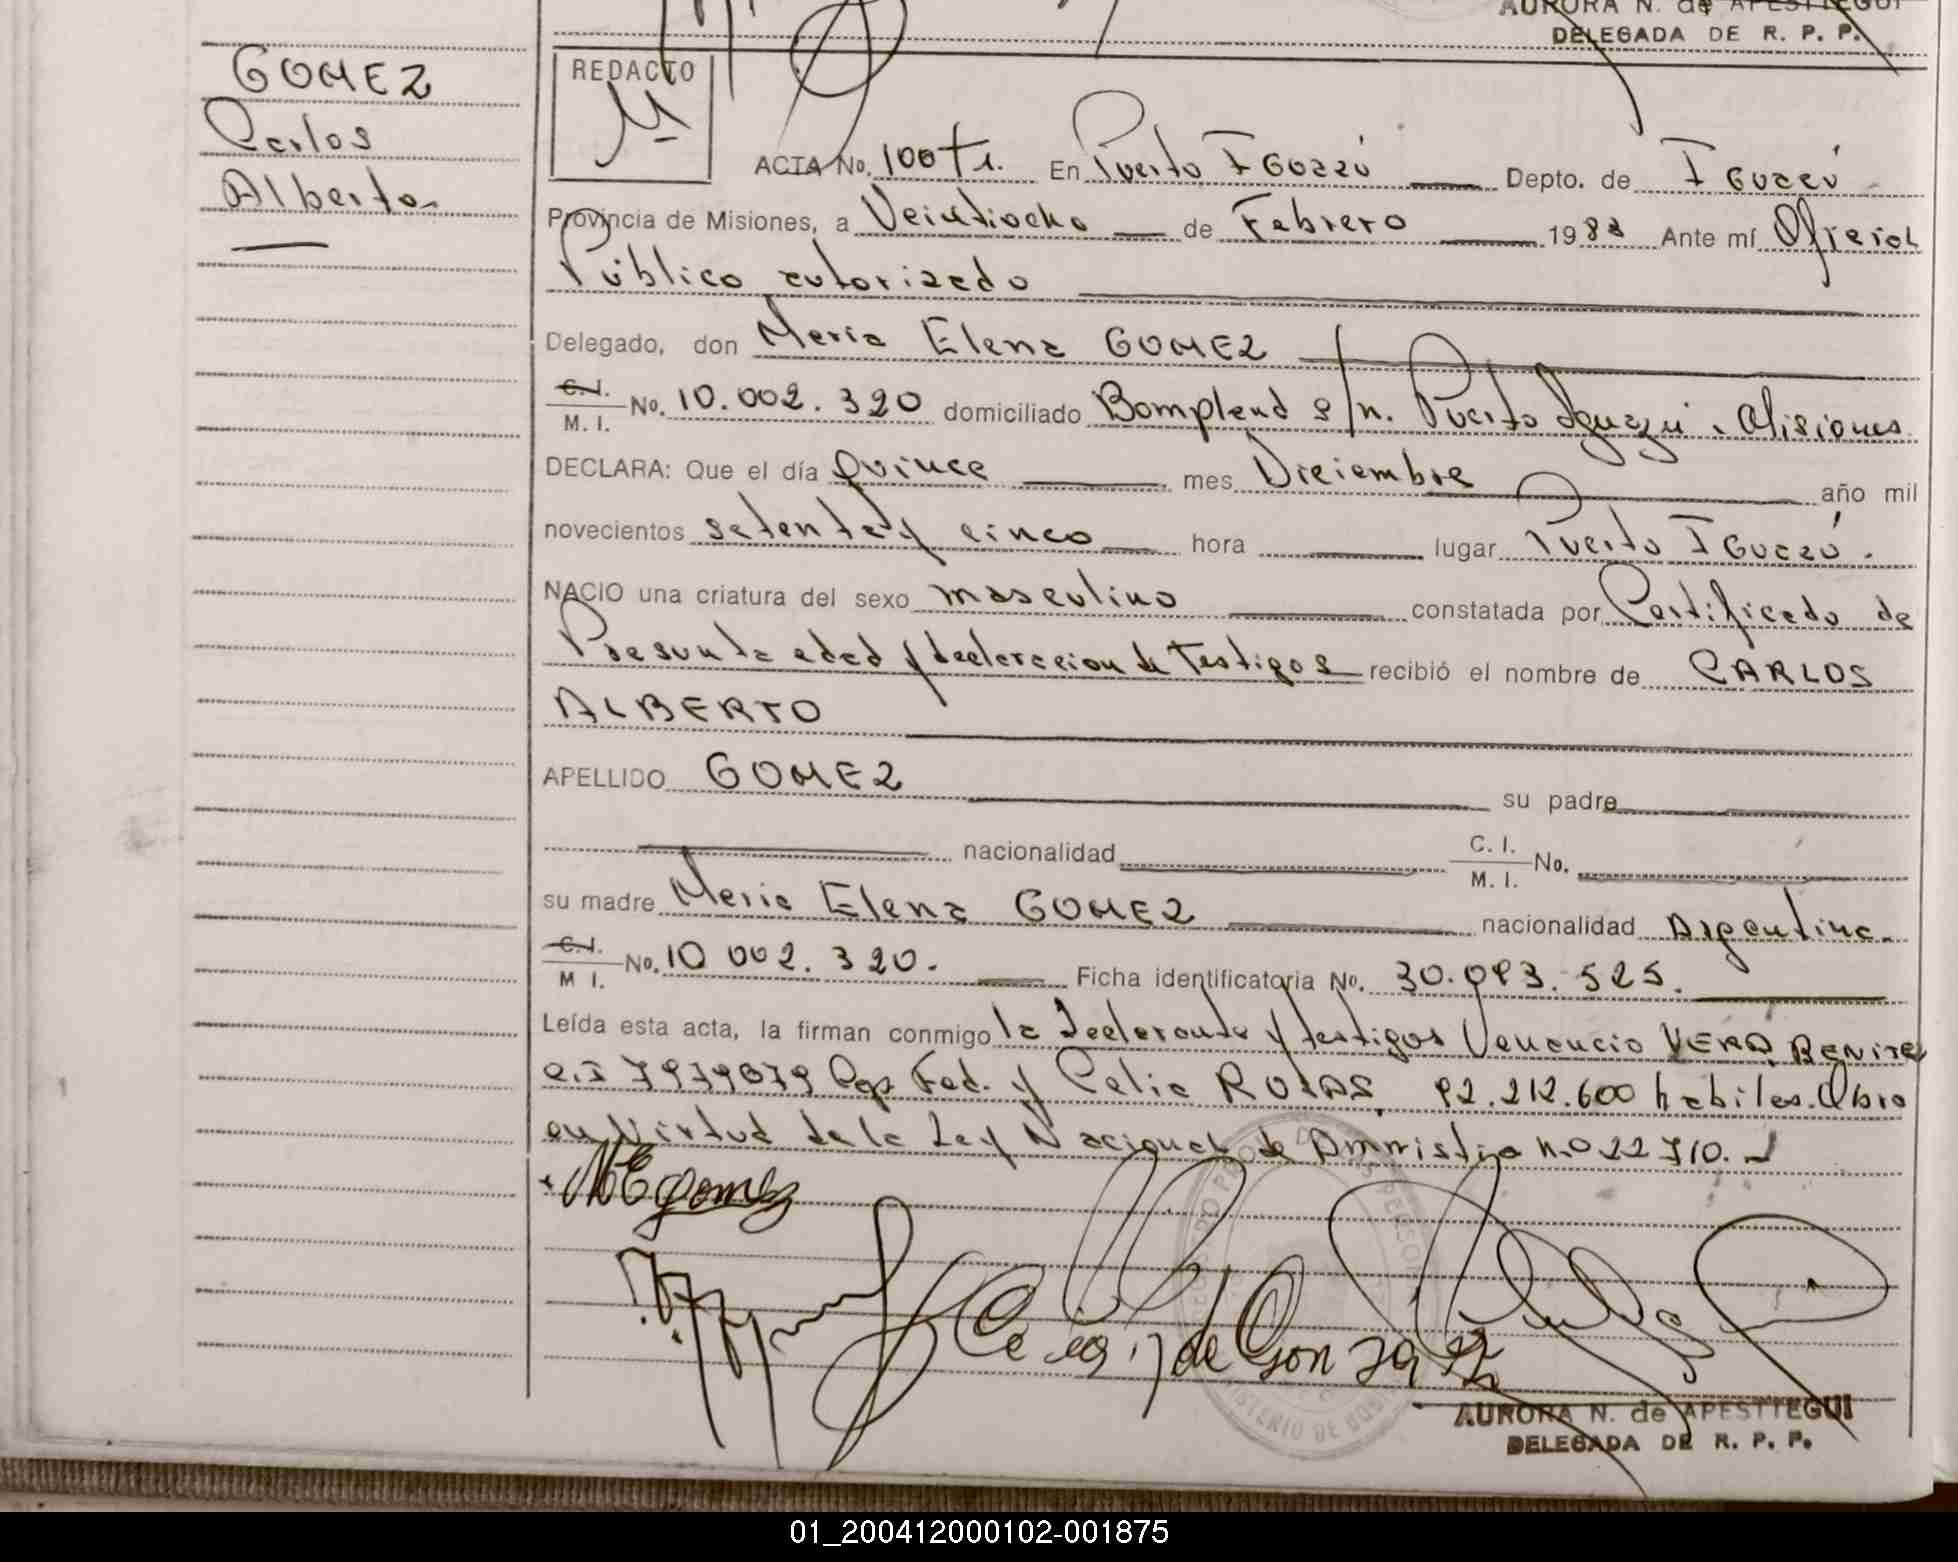 AURORA N. de APESTTEGUI
DELEGADA DE R. P. P.
GOMEZ
Carlos
Alberto
REDACTO
ACTA No. 100 TI. En Puerto IGUAZÚ Depto. de IGUAZÚ
Provincia de Misiones, a Veintiocho de Febrero 1983 Ante mí Oficial
Público autorizado
Delegado, don Maria Elena GOMEZ
C.I. / M. I. No. 10.002.320 domiciliado Bompland s/n. Puerto Iguazu. Misiones
DECLARA: Que el día quince mes Diciembre año mil
novecientos setenta y cinco hora lugar Puerto IGUAZÚ.
NACIO una criatura del sexo masculino constatada por Certificado de
Presunta edad y declaracion de Testigos recibió el nombre de CARLOS
ALBERTO
APELLIDO GOMEZ su padre
nacionalidad C. I. / M. I. No.
su madre Maria Elena GOMEZ nacionalidad Argentina.
C.I. / M I. No. 10 002. 320. Ficha identificatoria No. 30.093.525.
Leída esta acta, la firman conmigo la declarante y testigos Venancio VERA BENITE
C.I 7979079 Cap Fed. y Celia ROJAS, 92.212.600 habiles. Obro
en Virtud de la Ley Nacional de Amnistia n.o 22710.
MEgomez
Celia de Gonzalez
AURORA N. de APESTTEGUI
DELEGADA DE R. P. P.
01_200412000102-001875